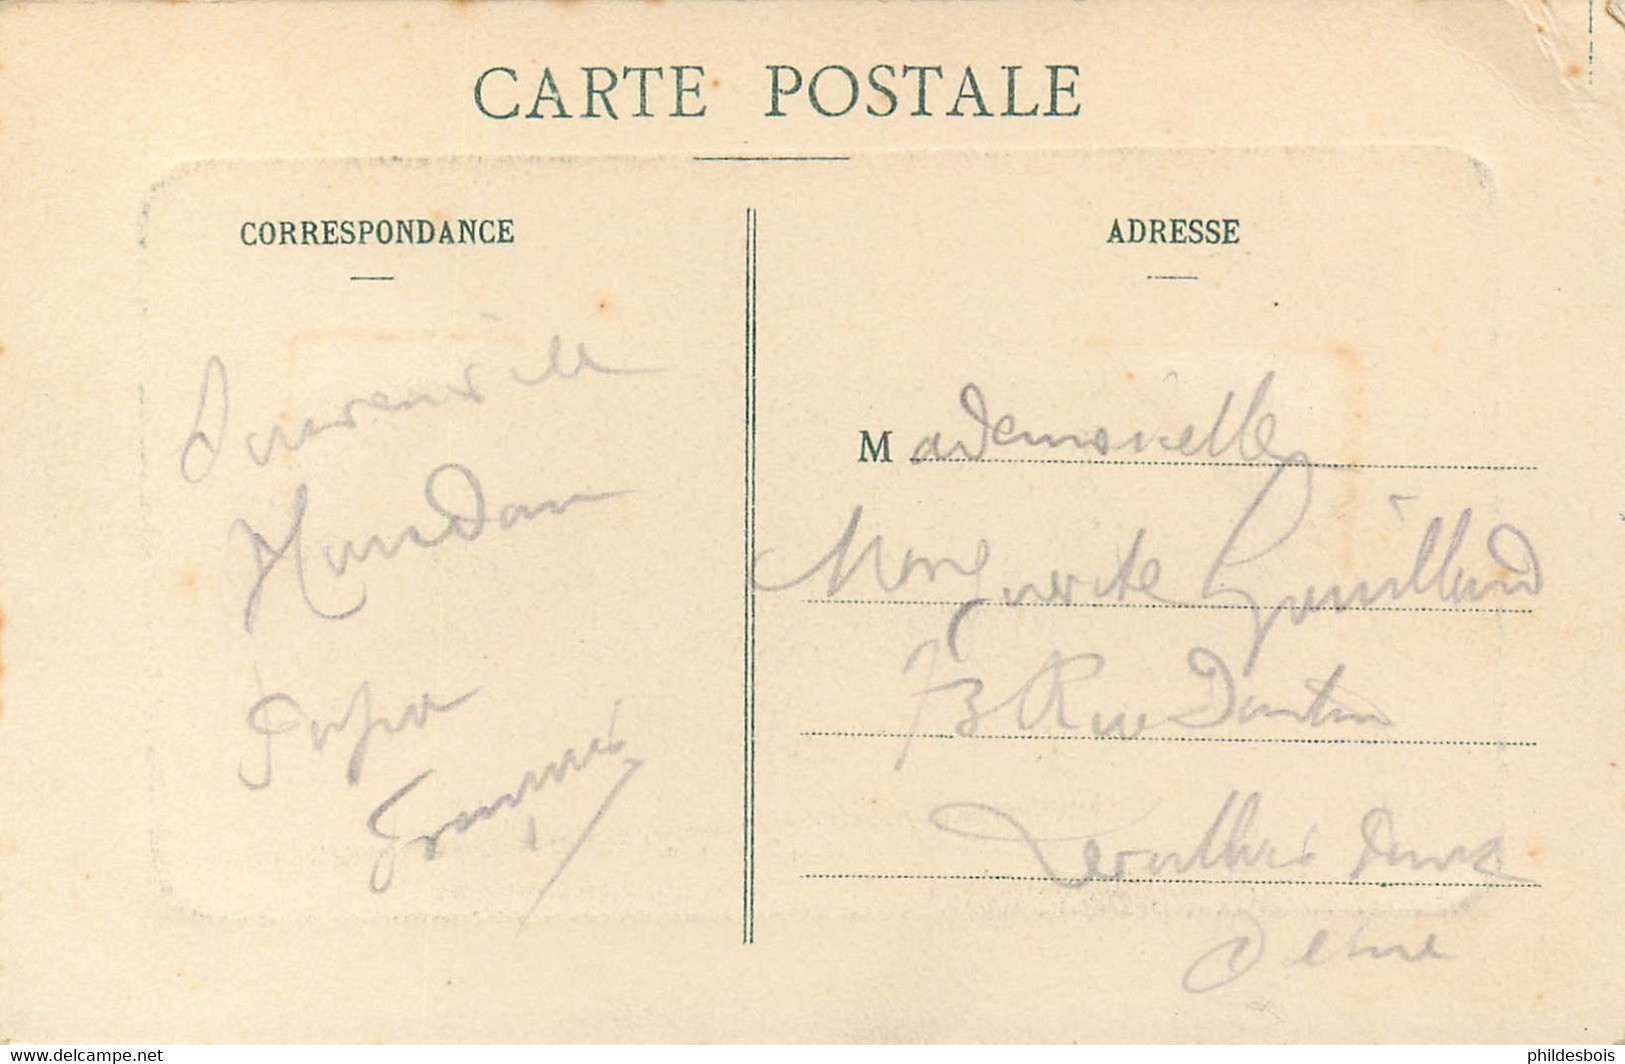 CARTE POSTALE
CORRESPONDANCE
Souvenir de
Houdan
Papa
ADRESSE
Mademoiselle
Marguerite Gouilland
73 Rue Danton
Levallois Perret
Seine
www.delcampe.net
phildesbois